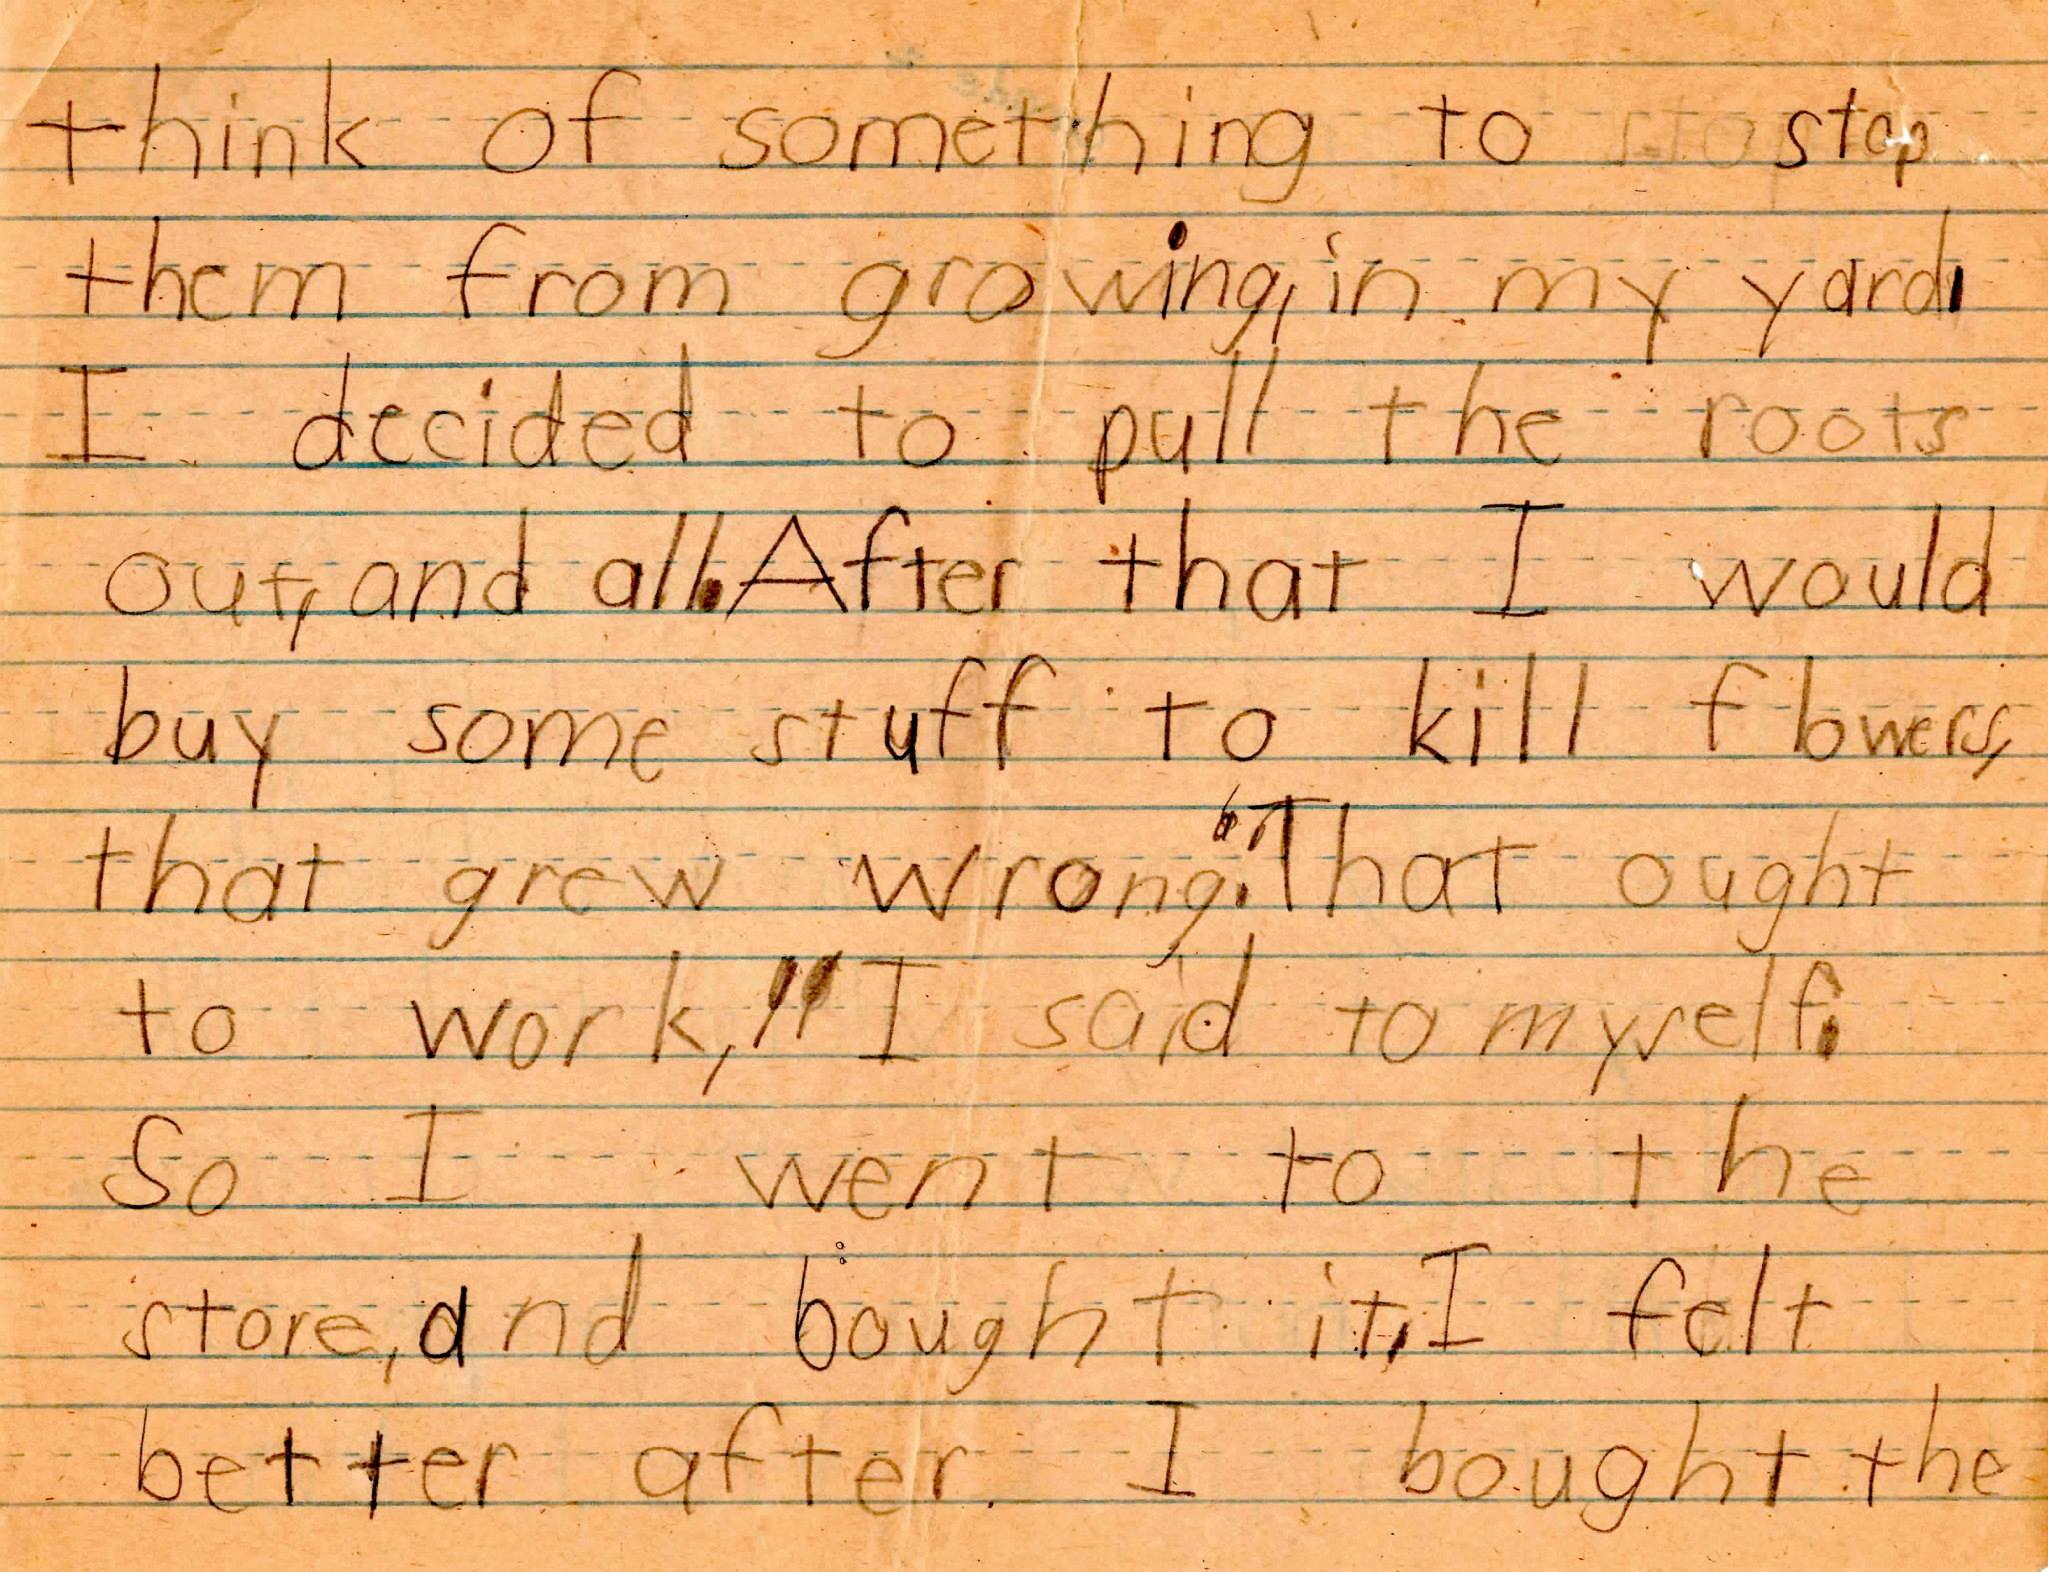 think of something to stop
them from growing, in my yard.
I decided to pull the roots
out, and all. After that I would
buy some stuff to kill flowers,
that grew wrong. "That ought
to work," I said to myself.
So I went to the
store, and bought it, I felt
better after I bought the